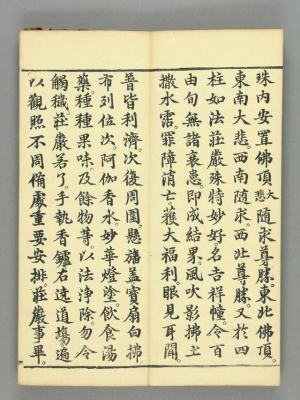 珠内安置佛頂大悲隨求尊勝。東北佛頂。
東南大悲。西南隨求。西北尊勝。又於四
柱如法莊嚴殊特妙好名吉祥幢。令百
由旬無諸衰患。即成結界。風吹影拂土
撒水霑。罪障消亡。獲大福利。眼見耳聞。
普皆利濟。次後周圍。懸旛蓋寶扇白拂
布列位次。阿伽香水。妙華燈塗。飲食湯
藥。種種果味。及餘物等。以法淨除。勿令
觸穢。莊嚴第了。手執香鑪。右遶道塲。遍
以觀照。不周備處。重要安排。莊嚴事畢。